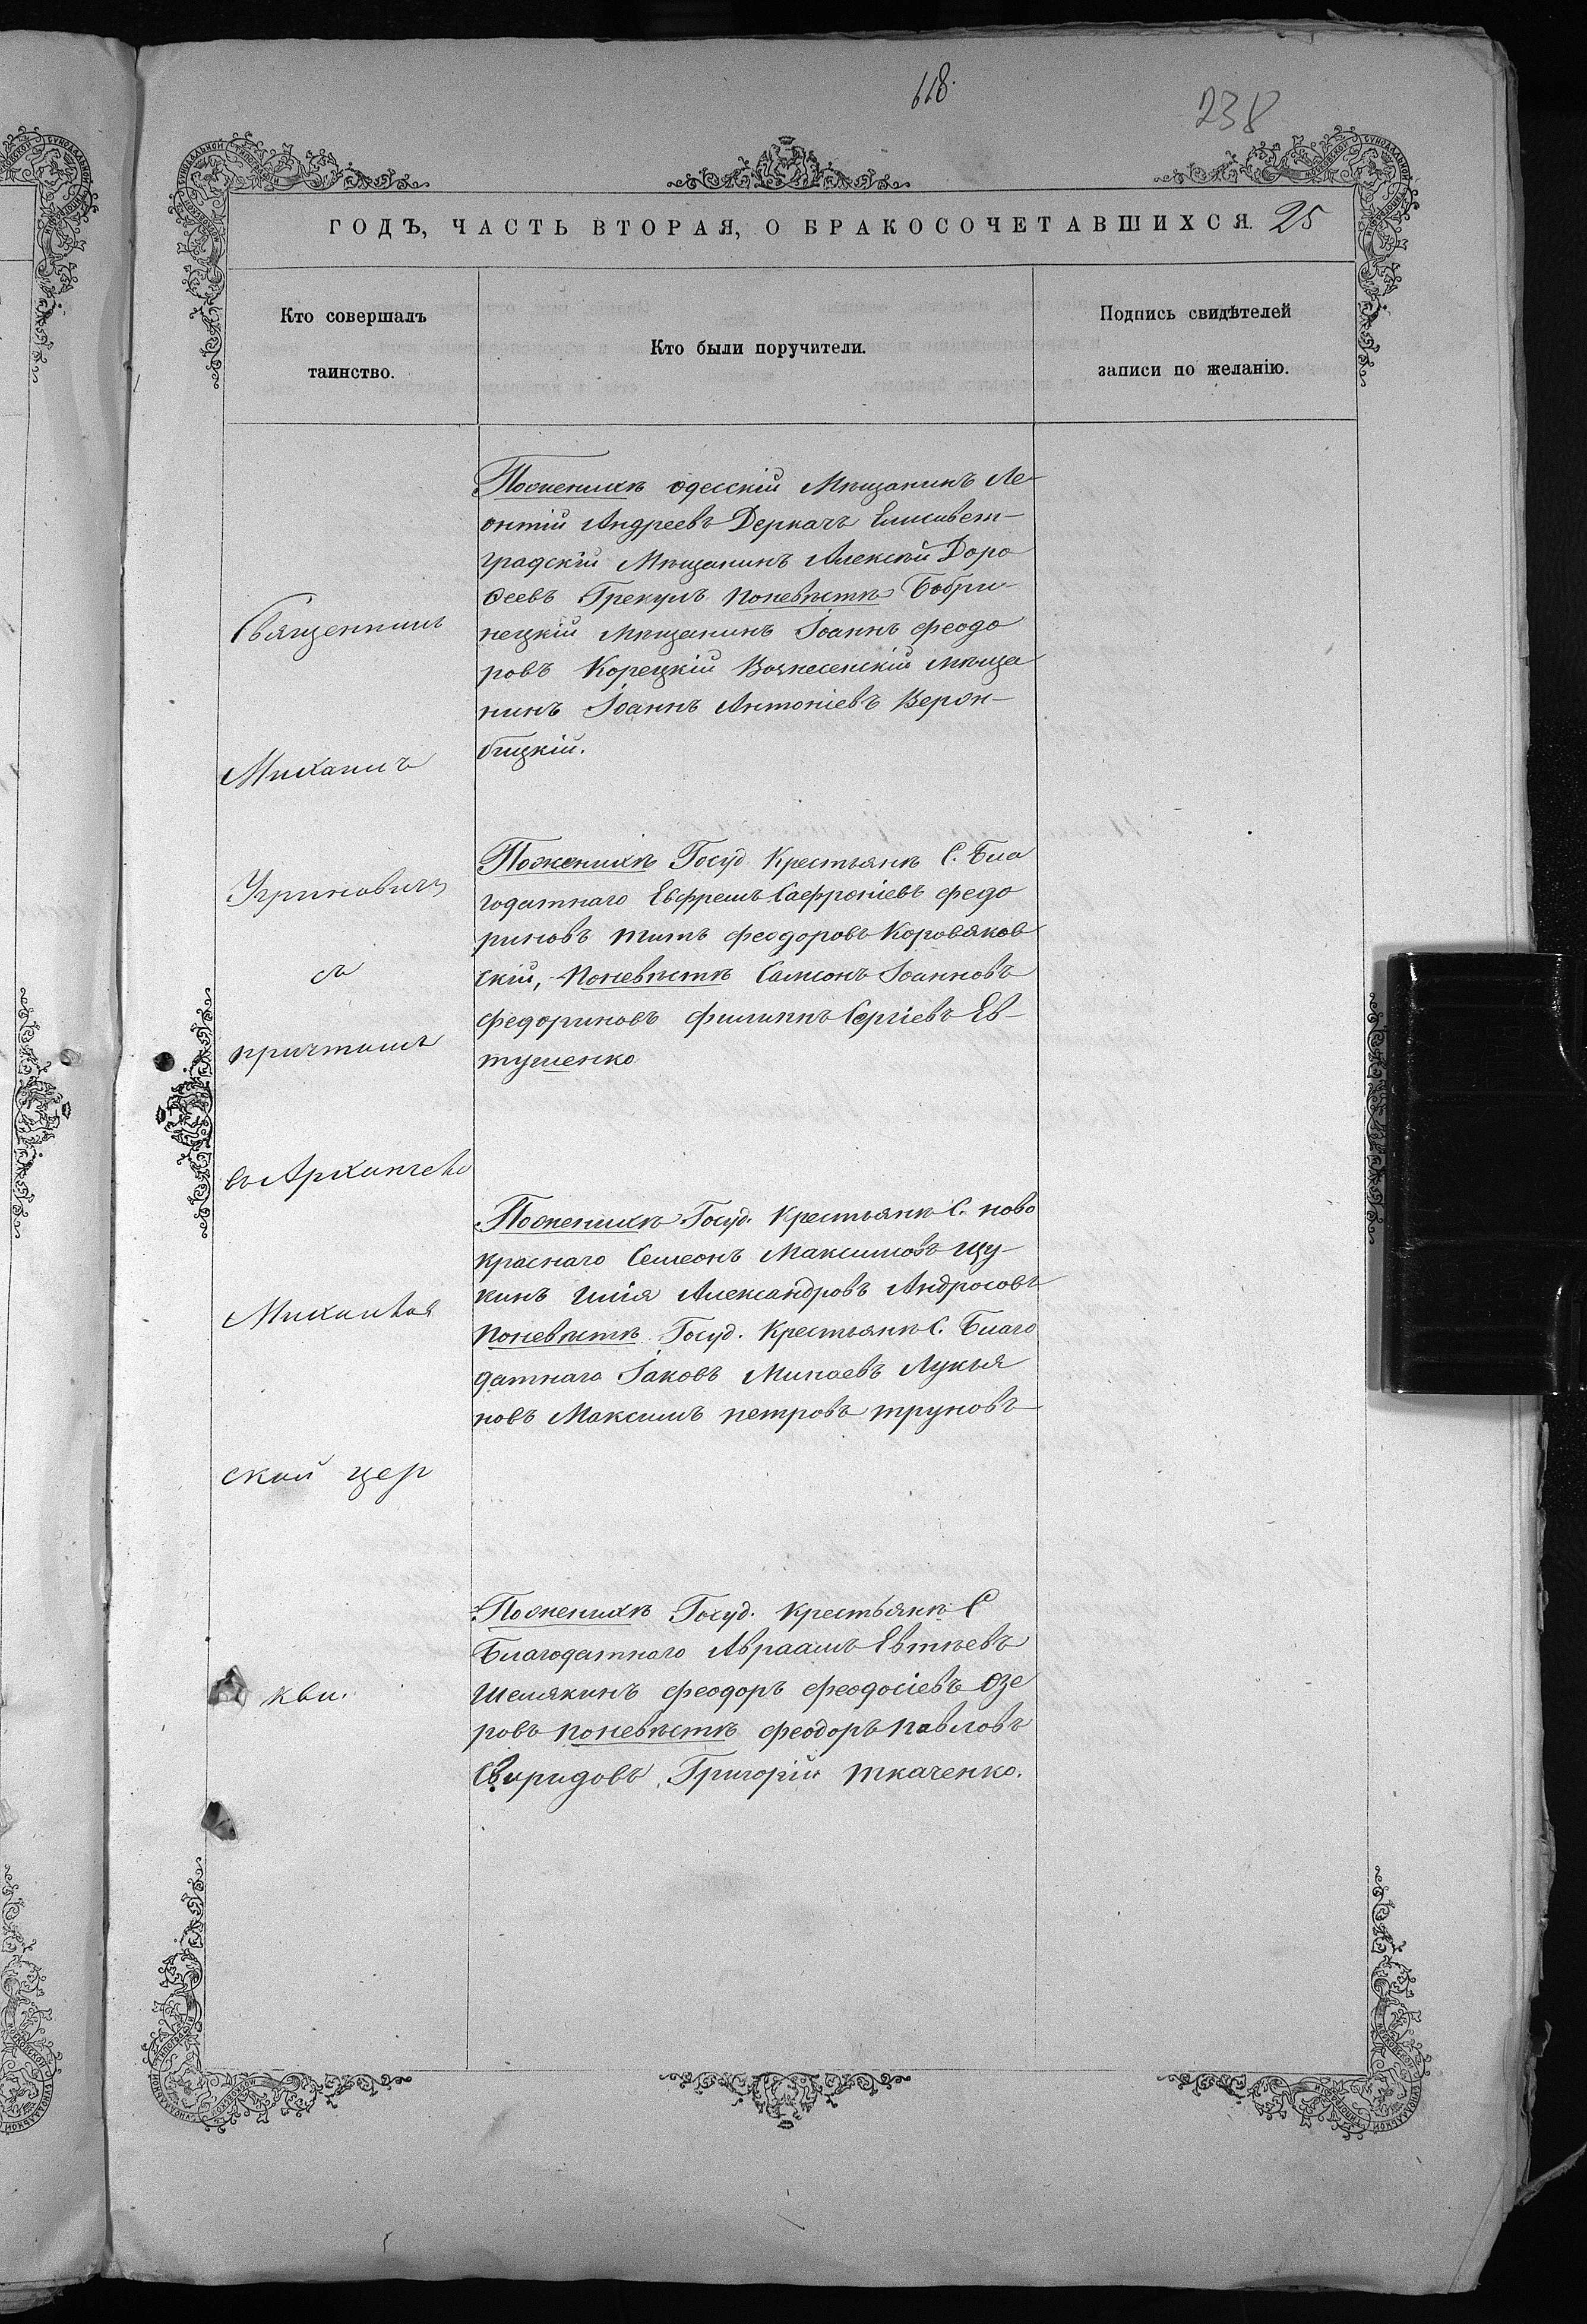 618.
238
ГОДЪ, ЧАСТЬ ВТОРАЯ, О БРАКОСОЧЕТАВШИХСЯ. 25
Кто совершалъ
таинство.
Кто были поручители.
Подпись свидѣтелей
записи по желанію.
Священникъ
Михаилъ
Угриновичъ
съ
причтомъ
въ Архангело
Михайлов
ской цер
кви.
Поженихѣ одесскій Мѣщанинъ Ле-
онтій Андреевъ Деркачъ Елисавет-
градскій Мѣщанинъ Алексѣй Доро
ѳеевъ Грекулъ поневѣстѣ Бобри-
нецкій мѣщанинъ Іоаннъ феодо
ровъ Корецкій Вознесенскій мѣща
нинъ Іоаннъ Антоніевъ Верон-
бицкій.
Поженихѣ Госуд Крестьянѣ С. Бла
годатнаго Евфремъ Сафроніевъ федо
риновъ титъ феодоровъ Коровяков
скій, Поневѣстѣ Самсонъ Іоанновъ
федориновъ филиппъ Сергіевъ Ев-
тушенко
Поженихѣ Госуд. Крестьянѣ С. ново
краснаго Семеонъ Максимовъ щу-
кинъ илія Александровъ Андросовъ
поневѣстѣ Госуд. Крестьянѣ С. Благо
датнаго Іаковъ Минаевъ Лукья
новъ Максимъ петровъ труновъ
Поженихѣ Госуд. крестьянѣ С
Благодатнаго Авраамъ Евтѣевъ
шелякинъ феодоръ феодосіевъ Озе
ровъ поневѣстѣ феодоръ павловъ
Свиридовъ, Григорій ткаченко.